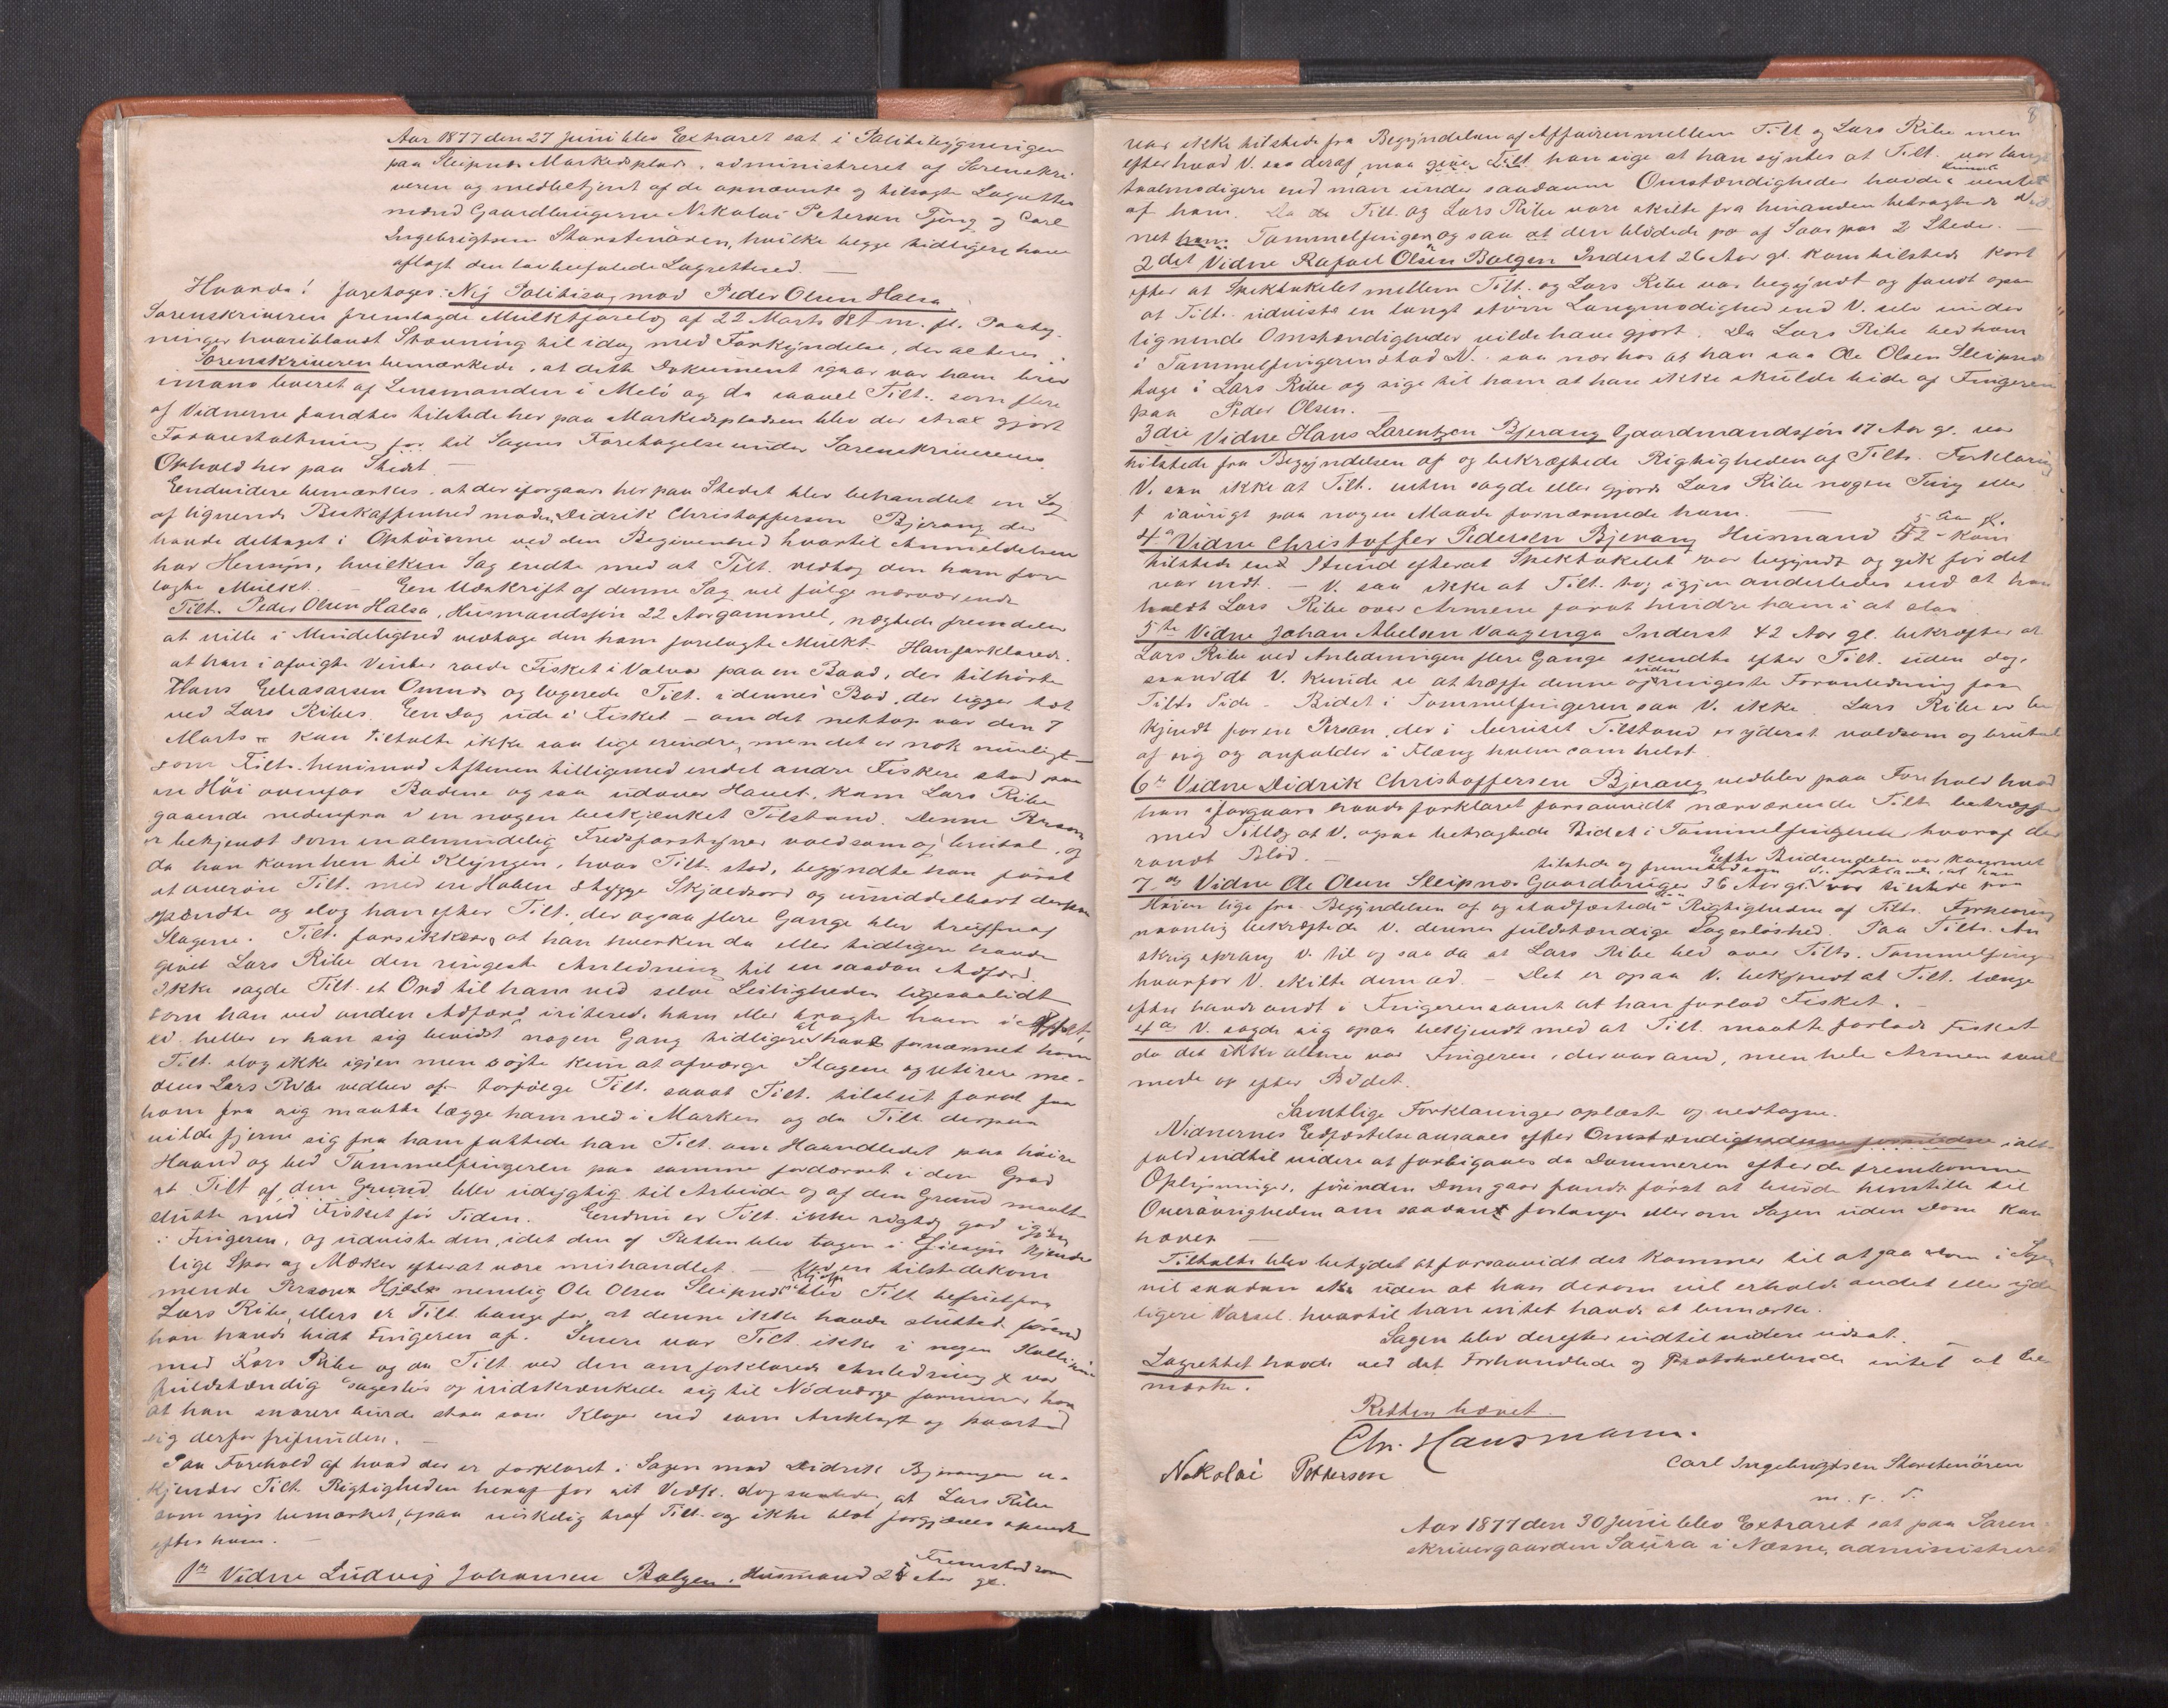 Aar 1877 den 27 Juni blev Extraret sat i Politibygningen
paa Sleipnæs Markedsplads, administreret af Sorenskri
veren og medbetjent af de opnævnte og tilsagte Lagrettes
mænd Gaardbrugerne Nikolai Petersen Tjong og Carl
Ingebrigtsen Storstenören, hvilke begge tidligere have
aflagt den lovbefalede Lagretteed. —
Hvorda! foretoges: Nej Politisag mod Peder Olsen Halsa
Sorenskriveren fremlagde Mulktforelæg af 22 Marts d. A. m. fl. Paateg
ninger hvoriblandt Stævning til idag med Forkyndelse, der acteres.
Sorenskriveren bemærkede, at dette Dokument igaar var ham brev
imano leveret af Lensmanden i Melö og da saavel Tilt. som flere
af Vidnerne fandtes tilstede her paa Markedspladsen blev der strax gjort
Foranstaltning for til Sagens Foretagelse under Sorenskriverens
Ophold her paa Stedet. —
Endvidere bemærkes, at der iforgaars her paa Stedet blev behandlet en Sag
af lignende Beskaffenhed mod Didrik Christoffersen Bjerang der
havde deltaget i Optöierne ved den Begivenhed hvortil Anmeldelsen
har Hensyn, hvilken Sag endte med at Tilt. vedtog den ham fore
lagte Mulkt. — Een Udskrift af denne Sag vil fölge nærværende
Tilt. Peder Olsen Halsa, Husmandssjön 22 Aar gammel, nægtede fremdeles
at ville i Mindelighed vedtage den ham forelagte Mulkt. Han forklarede.
at han i afvigte Vinter roede Fisket i Valvær paa en Baad, der tilhörte
Hans Eeliasarsen Omnæs og logerede Tilt. i dennes Bod, der ligger tæt
ved Lars Ribes. Een Dag ude i Fisket – om det nettop var den 7
Marts – kan tiltalte ikke saa lige erindre, men det er nok muligt –
som Tilt. henimod Aftenen tilligemed endel andre Fiskere stod paa
en Höi ovenfor Boderne og saa udover Havet, kom Lars Ribe
gaaende nedenfra i en nogen beskjænket Tilstand. Denne Person
er bekjendt som en almindelig Fredsforstyrrer voldsom og brutal, og
da han kom hen til Klyngen, hvor Tilt. stod, begyndte han först
at overöse Tilt. med en Hoben stygge Skjældsord og umiddelbart derpaa
spændte og slog han efter Tilt. der ogsaa flere Gange blev truffen af
Slagene. Tilt. forsikkrer, at han hverken da eller tidligere havde
givet Lars Ribe den ringeste Anledning til en saadan Adfærd.
Ikke sagde Tilt. et Ord til ham ved selve Leiligheden ligesaalidt
som han ved anden Adfærd irriterede ham eller bragte ham i Affekt,
ei heller er han sig bevidst nogen Gang tidligere at have fornærmet ham
Tilt. slog ikke igjen men søgte kun at afværge Slagene og retirere me-
dens Lars Ribe vedblev at forfölge Tilt. saaat Tilt. tilslut forat faa
ham fra sig maatte lægge ham ned i Marken og da Tilt. derpaa
vilde fjerne sig fra ham fattede han Tilt. om Haandledet paa höire
Haand og bed Tommelfingeren paa samme fordærvet i den Grad
at Tilt. af den Grund blev udygtig til Arbeide og af den Grund maatte
slutte med Fisket för Tiden. Eendnu er Tilt. ikke rigtig god igjen
i Fingeren, og udviste den, idet den af Retten blev tagen i Öiesyn kjende
lige Spor og Mærker efter at være mishandlet. — Ved en tilstedekom
mende Persons Hjælp nemlig Ole Olsen Sleipnæs blev Tilt. befriet fra
Lars Ribe, ellers er Tilt. bange for, at denne ikke havde sluttet förend
han havde bidt Fingeren af. Imere var Tilt. ikke i nogen Kollision
med Lars Ribe og da Tilt. ved den omforklarede Anledning var
fuldstændig sageslös og indskrænkede sig til Nödværge formener han
at han snarere burde staa som Klager end som Anklagt og paastod
sig derfor frifunden. —
Paa Forehold af hvad der er forklaret i Sagen mod Didrik Bjerangen er-
kjender Tilt. Rigtigheden heraf for sit Vedk. dog saaledes, at Lars Ribe
som nys bemærket, ogsaa virkelig traf Tilt. og ikke blot forgjæves spændte
efter ham. —
1ste Vidne Ludvig Johansen Bolgen, Husmand 24 Aar gl. Fremstod som
var ikke tilstede fra Begyndelsen af Affæren mellem Tilt. og Lars Ribe men
efter hvad V. saa deraf, maa han sige at han syntes at Tilt. var langt
taalmodigere end man under saadanne Omstændigheder havde kunnet ventet
af ham. Da Tilt. og Lars Ribe vare skilte fra hinanden betragtede Vid
net Tommelfingeren og saa at den blödede paa af Saar paa 2 Steder. —
2det Vidne Rafael Olsen Bolgen Inderst 26 Aar gl. kom tilstede kort
efter at Spektakelet mellem Tilt. og Lars Ribe var begyndt og fandt ogsaa
at Tilt. udviste en langt större Langmodighed end V. selv under
lignende Omstændigheder vilde have gjort. Da Lars Ribe bed ham
i Tommelfingeren stod V. saa nær hos at han saa Ole Olsen Sleipnæs
tage i Lars Ribe og sige til ham at han ikke skulde bide af Fingeren
paa Peder Olsen. —
3die Vidne Hans Larentzen Bjerang Gaardmandssjön 17 Aar gl. var
tilstede fra Begyndelsen af og bekræftede Rigtigheden af Tilts. Forklaring
V. saa ikke at Tilt. enten sagde eller gjorde Lars Ribe nogen Ting eller
iövrigt paa nogen Maade fornærmede ham. —
4de Vidne Christoffer Pedersen Bjerang Husmand 52 Aar gl. kom
tilstede end Stund efterat Spektakelet var begyndt og gik för det
var endt. – V. saa ikke at Tilt. tog igjen anderledes end at han
holdt Lars Ribe over Armene forat hindre ham i at slaa
5te Vidne Johan Abelsen Vaagenga Inderst 42 Aar gl. bekræfter at
Lars Ribe ved Anledningen flere Gange skendte efter Tilt. uden dog.
saavidt V. kunde se at træffe denne og uden ringeste Foranledning fra
Tilts Side. Bidet i Tommelfingeren saa V. ikke. Lars Ribe er be
kjendt for en Person, der i beruset Tilstand er yderst voldsom og brutal
af sig og anfalder i Flæng hvem som helst.
6te Vidne Didrik Christoffersen Bjerang vedblev paa Forehold hvad
han iforgaars havde forklaret forsaavidt nærværende Tilt. betræffer
med Tillæg at V. ogsaa betragtede Bidet i Tommelfingeren hvoraf der
randt Blod. —
Efter Budsendelse var kommet
tilstede og fremstod som V. forklarede at han
7de Vidne Ole Olsen Sleipnæs Gaardbruger 36 Aar gl. var tilstede paa
Höien lige fra Begyndelsen af og stadfæstede Rigtigheden af Tilts. Forklaring
navnlig bekræftede V. dennes fuldstændige Sageslöshed. Paa Tilts. An
skrig sprang V. til og saa da at Lars Ribe bed over Tilts. Tommelfinger
hvorfor V. skilte dem ad. – Det er ogsaa V. bekjendt at Tilt. længe
efter havde ondt i Fingeren samt at han forlod Fisket. —
4de V. sagde sig ogsaa bekjendt med at Tilt. maatte forlade Fisket
da det ikke alene var Fingeren, der var ond, men hele Armen svul
mede op efter Bidet.
Samtlige Forklaringer oplæste og vedtagne.
Vidnernes Eedfæstelse ansaaes efter Omstændighederne ialt
fald indtil videre at forbigaaes da Dommeren efter de fremkomne
Oplysninger, förinden Dom gaar fandt först at burde henstille til
Overövrigheden om saadant forlanges eller om Sagen uden Dom kan
hæves —
Tiltalte blev betydet at forsaavidt det kommer til at gaa Dom i Sagen
vil saadan ske uden at han derom vil erholde andet eller yder
ligere Varsel, hvortil han intet havde at bemærke.
Sagen blev derefter indtil videre udsat.
Lagrettet havde ved det Forhandlede og Protokollerede intet at be
mærke.
Retten hævet.
Chr. Hansmann.
Nokolai Pettersen
Carl Ingebrigtsen Storstenören
m. f. P.
Aar 1877 den 30 Juni blev Extraret sat paa Soren
skrivergaarden Saura i Næsne, administreret